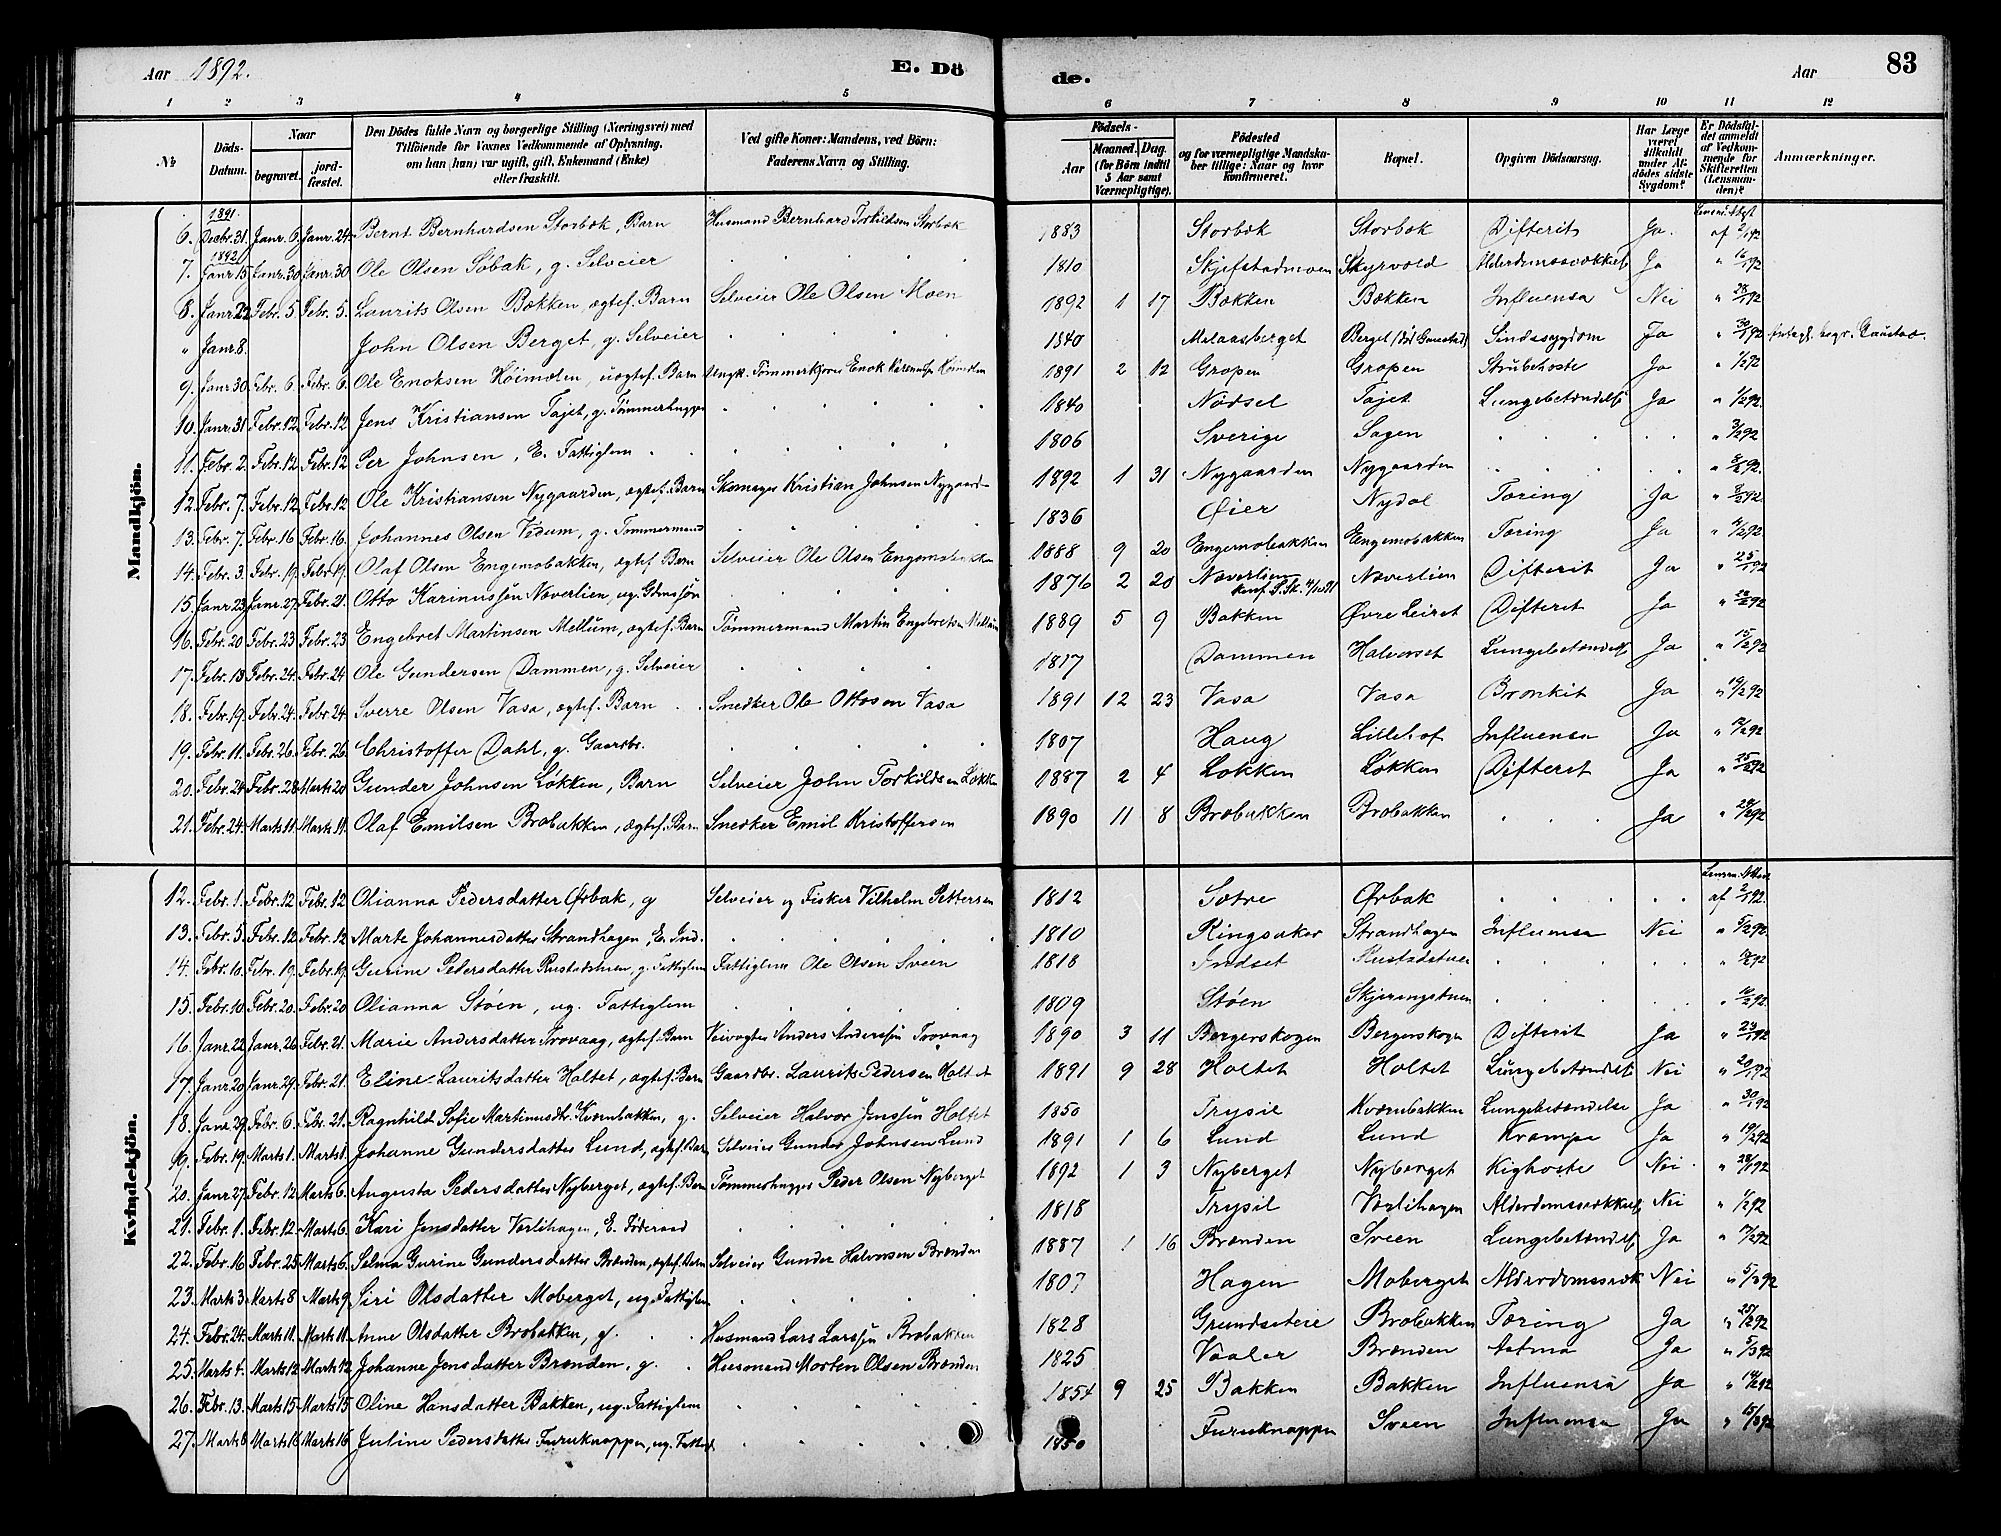 Aar 1892. E. Dö
de. Aar 83
1 2 3 4 5 6 7 8 9 10 11 12
№ Döds-Datum. Naar begravet. jordfæstet. Den Dödes fulde Navn og borgerlige Stilling (Næringsvei) med Tilföiende for Voxnes Vedkommende af Oplysning, om han (hun) var ugift, gift, Enkemand (Enke) eller fraskilt. Ved gifte Koner: Mandens, ved Börn: Faderens Navn og Stilling. Födsels- Aar Maaned. Dag. (for Börn indtil 5 Aar samt Værnepligtige). Födested og for værnepligtige Mandskaber tillige: Naar og hvor konfirmeret. Bopæl. Opgiven Dödsaarsag. Har Læge været tilkaldt under Afdödes sidste Sygdom? Er Dödsfaldet anmeldt af Vedkommende for Skifteretten (Lensmanden)? Anmærkninger.
Mandkjön.
6. 1891 Decbr. 31. Janr. 6. Janr. 24. Bernt Bernhardsen Storbæk, Barn Husmand Bernhard Torkildsen Storbæk 1883 Storbæk Storbæk Difterit Ja. af 2/1 92
7. 1892 Janr. 15. Janr. 30 Janr. 30 Ole Olsen Søbak, g. Selveier 1810 Skjefstadmoen Skyrvold Alderdomssvækkelse Ja " 16/1 92
8. Janr. 22 Febr. 5. Febr. 5. Laurits Olsen Bakken, ægtef. Barn Selveier Ole Olsen Moen 1892 1 17 Bakken Bakken Influensa Nei " 28/1 92
" Janr. 8. John Olsen Berget, g. Selveier 1840 Melaasberget Berget Sindssygdom Ja " 30/1 92
9. Janr. 30 Febr. 6. Febr. 6. Ole Enoksen Höimoen, uægtef. Barn Ungk. Tømmerkjører Enok 1891 2 12 Gropen Gropen Strubehoste Ja " 1/2 92
10. Janr. 31 Febr. 12 Febr. 12 Jens Kristiansen Tajet, g. Tømmerhugger 1840 Nødsel Tajet Lungebetændelse Ja " 1/2 92.
11. Febr. 2. Febr. 12 Febr. 12 Per Johnsen, E. Fattiglem 1806 Sverige Sagen " 3/2 92
12. Febr. 7. Febr. 12 Febr. 12 Ole Kristiansen Nygaarden, ægtef. Barn Skomager Kristian Johnsen Nygaarden 1892 1 31 Nygaarden Nygaarden " 8/2 92.
13. Febr. 7. Febr. 16 Febr. 16. Johannes Olsen Vedum, g. Tømmermand 1836 Øier Nydal Tæring Ja " 8/2 92
14. Febr. 3. Febr. 19. Febr. 19. Olaf Olsen Engemobakken, ægtef. Barn Selveier Ole Olsen Engemobakken 1888 9 20 Engemobakken Engemobakken Tæring Ja " 4/2 92
15. Janr. 23 Janr. 27 Febr. 21. Otto Karinussøn Næverlien, ug. Gdmssøn 1876 2 20 Næverlien Næverlien Difterit Ja " 25/1 92
16. Febr. 20 Febr. 23 Febr. 23 Engebret Martinsen Mellum, ægtef. Barn Tømmermand Martin Engebretsen Mellum 1889 5 9 Bakken Øvre Leiret Difterit Ja
17. Febr. 13 Febr. 24. Febr. 24 Ole Gundersen Dammen, g. Selveier 1817 Dammen Halvorset Lungebetændelse Ja " 15/2 92
18. Febr. 19. Febr. 24. Febr. 24 Sverre Olsen Vasa, ægtef. Barn Snedker Ole Ottosen Vasa 1891 12 23 Vasa Vasa Bronkit Ja " 19/2 92
19. Febr. 11. Febr. 26. Febr. 26. Christoffer Dahl, g. Gaardbr. 1807 Haug Lillehof Influensa Ja " 12/2 92
20. Febr. 24. Febr. 28 Marts 20 Gunder Johnsen Løkken, Barn Selveier John Torkildsen Løkken 1887 2 4 Løkken Løkken Difterit Ja " 25/2 92
21. Febr. 24. Marts 11. Marts 11. Olaf Emilsen Brobakken, ægtef. Barn Snedker Emil Kristoffersen 1890 11 8 Brobakken Brobakken Ja " 28/2 92
Kvindekjön.
12. Febr. 1. Febr. 12 Febr. 12 Olianna Pedersdatter Ørbæk, g Selveier og Fisker Vilhelm Pettersen 1812 Sotre Ørbæk af 2/1 92.
13. Febr. 5. Febr. 12 Febr. 12 Marte Johannesdatter Strandhagen, E. Ind. 1810 Ringsaker Strandhagen Influensa Nei " 5/2 92
14. Febr. 10. Febr. 19 Febr. 19. Gurine Pedersdatter Rustadstuen, g. Fattiglem Fattiglem Ole Olsen Sveen 1818 Indset Rustadstuen
15. Febr. 10 Febr. 20 Febr. 20 Olianna Støen, ug. Fattiglem 1809 Støen Skjeringstuen
16. Janr. 22 Janr. 26 Febr. 21. Marie Andersdatter Trovaag, ægtef. Barn Veivogter Anders Anderssøn Trovaag 1890 3 11 Bergerskogen Bergerskogen Difterit Ja " 23/1 92
17. Janr. 20 Janr. 29. Febr. 21. Eline Lauritsdatter Holtet, ægtef. Barn Gaardbr. Laurits Pedersen Holtet 1891 9 28 Holtet Holtet Lungebetændelse Nei " 20/1 92
18. Janr. 29. Febr. 6. Febr. 21. Ragnhild Sofie Martinusdtr. Kværnbakken, g. Selveier Halvor Jenssøn Holtet 1850 Trysil Kværnbakken Lungebetændelse Ja " 30/1 92
19. Febr. 19. Marts 1. Marts 1. Johanne Gundersdatter Lund, ægtef. Barn Selveier Gunder Johnsen Lund 1891 1 6 Lund Lund Krampe Ja " 19/2 92
20. Janr. 27. Febr. 12 Marts 6. Augusta Pedersdatter Nyberget, ægtef. Barn Tømmerhugger Peder Olsen Nyberget 1892 1 3 Nyberget Nyberget Kighoste Nei " 28/1 92
21. Febr. 1. Febr. 12 Marts 6. Kari Jensdatter Vorlihagen, E. Føderaad 1818 Trysil Vorlihagen Alderdomssvækkelse Nei " 1/2 92
22. Febr. 16 Febr. 25 Marts 6. Selma Gurine Gundersdatter Brænden, ægtef. Barn Selveier Gunder Halvorsen Brænden 1887 1 16 Brænden Sveen Lungebetændelse Ja " 17/2 92
23. Marts 3. Marts 8 Marts 9 Siri Olsdatter Moberget, ug. Fattiglem 1807 Hagen Moberget Alderdomssvæk. Nei " 5/3 92
24. Febr. 24. Marts 11. Marts 11. Anne Olsdatter Brobakken, g. Husmand Lars Larssøn Brobakken 1828 Grundseteie Brobakken Tæring Ja " 25/2 92
25. Marts 4. Marts 12 Marts 12 Johanne Jensdatter Brænden, g. Husmand Morten Olsen Brænden 1825 Vaaler Brænden Astma Ja " 5/3 92
26. Febr. 13. Marts 15 Marts 15 Oline Hansdatter Bakken, ug. Fattiglem 1854 9 25 Bakken Bakken Influensa Ja " 14/2 92
27. Marts 8 Marts 16 Marts 16 Juline Pedersdatter Furuknappen, ug. Fattigl. 1850 Furuknappen Sveen Influensa Ja " 15/3 92